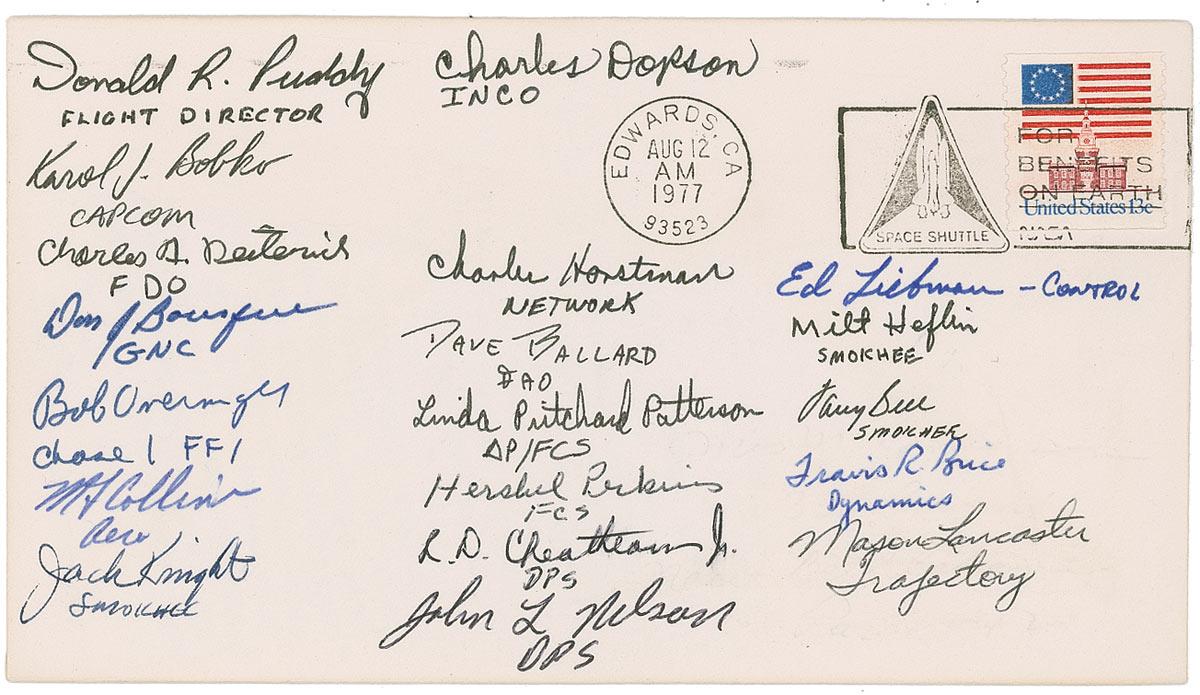 Donald R. Puddy
FLIGHT DIRECTOR
Karol J. Bobko
CAPCOM
Charles A. Deiterich
FDO
Don J Bourque
GNC
Bob Overmyer
Chase 1 FF1
M F Collins
Aero
Jack Knight
SMOKHEE
Charles Dopson
INCO
EDWARDS, CA
AUG 12
AM
1977
93523
Charles Horstman
NETWORK
DAVE BALLARD
FAO
Linda Pritchard Patterson
AP/FCS
Hershel Perkins
FCS
R. D. Cheatham Jr.
DPS
John L Nelson
DPS
SPACE SHUTTLE
FOR
BENEFITS
ON EARTH
NASA
United States 13c
Ed Liebman - CONTROL
Milt Heflin
SMOKHEE
SMOKHEE
Travis R. Brice
Dynamics
Mason Lancaster
Trajectory